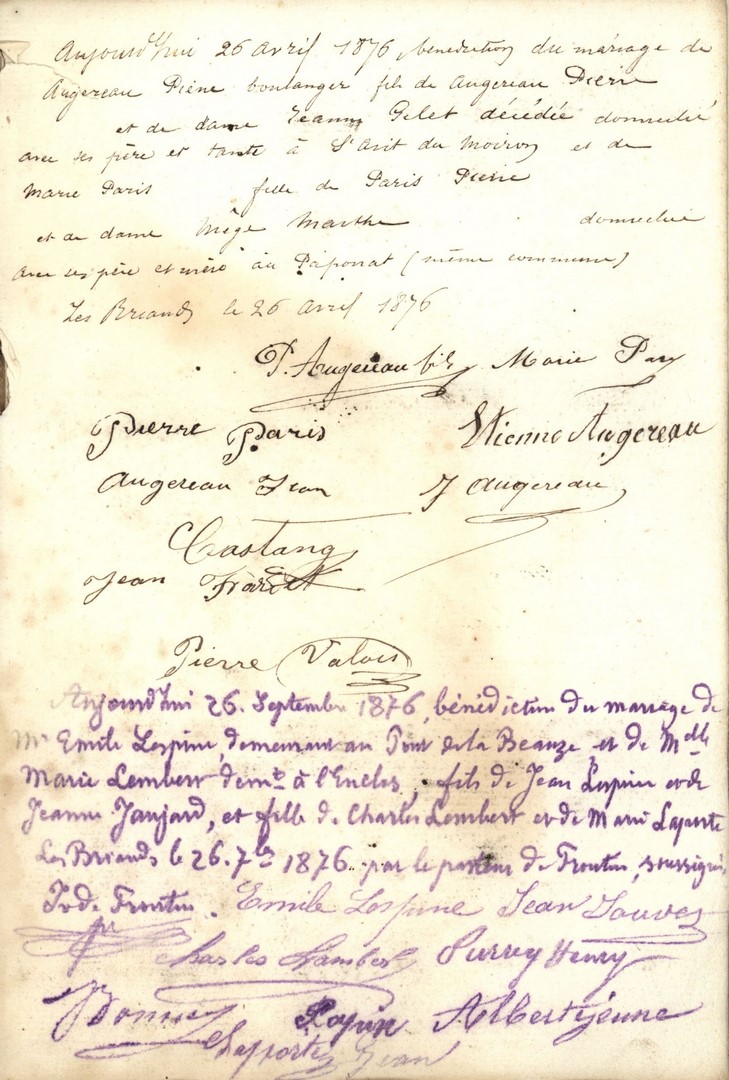 Aujourd'hui 26 avril 1876, bénédiction du mariage de
Augereau Pierre boulanger fils de Augereau Pierre
et de dame Jeanne Gelet décédée domicilié
avec ses père et tante à du et de
Marie Paris fille de Paris Pierre
et de dame Mège Marthe domiciliée
avec ses père et mère au Paponat (même commune)
Les Briands le 26 avril 1876
P. Augereau fils Marie Paris
Pierre Paris Etienne Augereau
Augereau Jean J Augereau
Castang
Jean
Pierre Valois
Aujourd'hui 26. Septembre 1876, bénédiction du mariage de
Mr Emile Lespine, demeurant au Pont de la Beauze et de Mdlle
Marie Lembert demt à l'Enclos, fils de Jean Lespine et de
Jeanne Jaujard, et fille de Charles Lembert et de Marie Laporte
Les Briands le 26. 7bre 1876 par le pasteur de Froutin, soussigné
J. de Froutin. Emile Lespine Jean Jauvez
pr
Charles Lambert Surrey Henry
Bonn Lapin Albert jeune
Laporte Jean